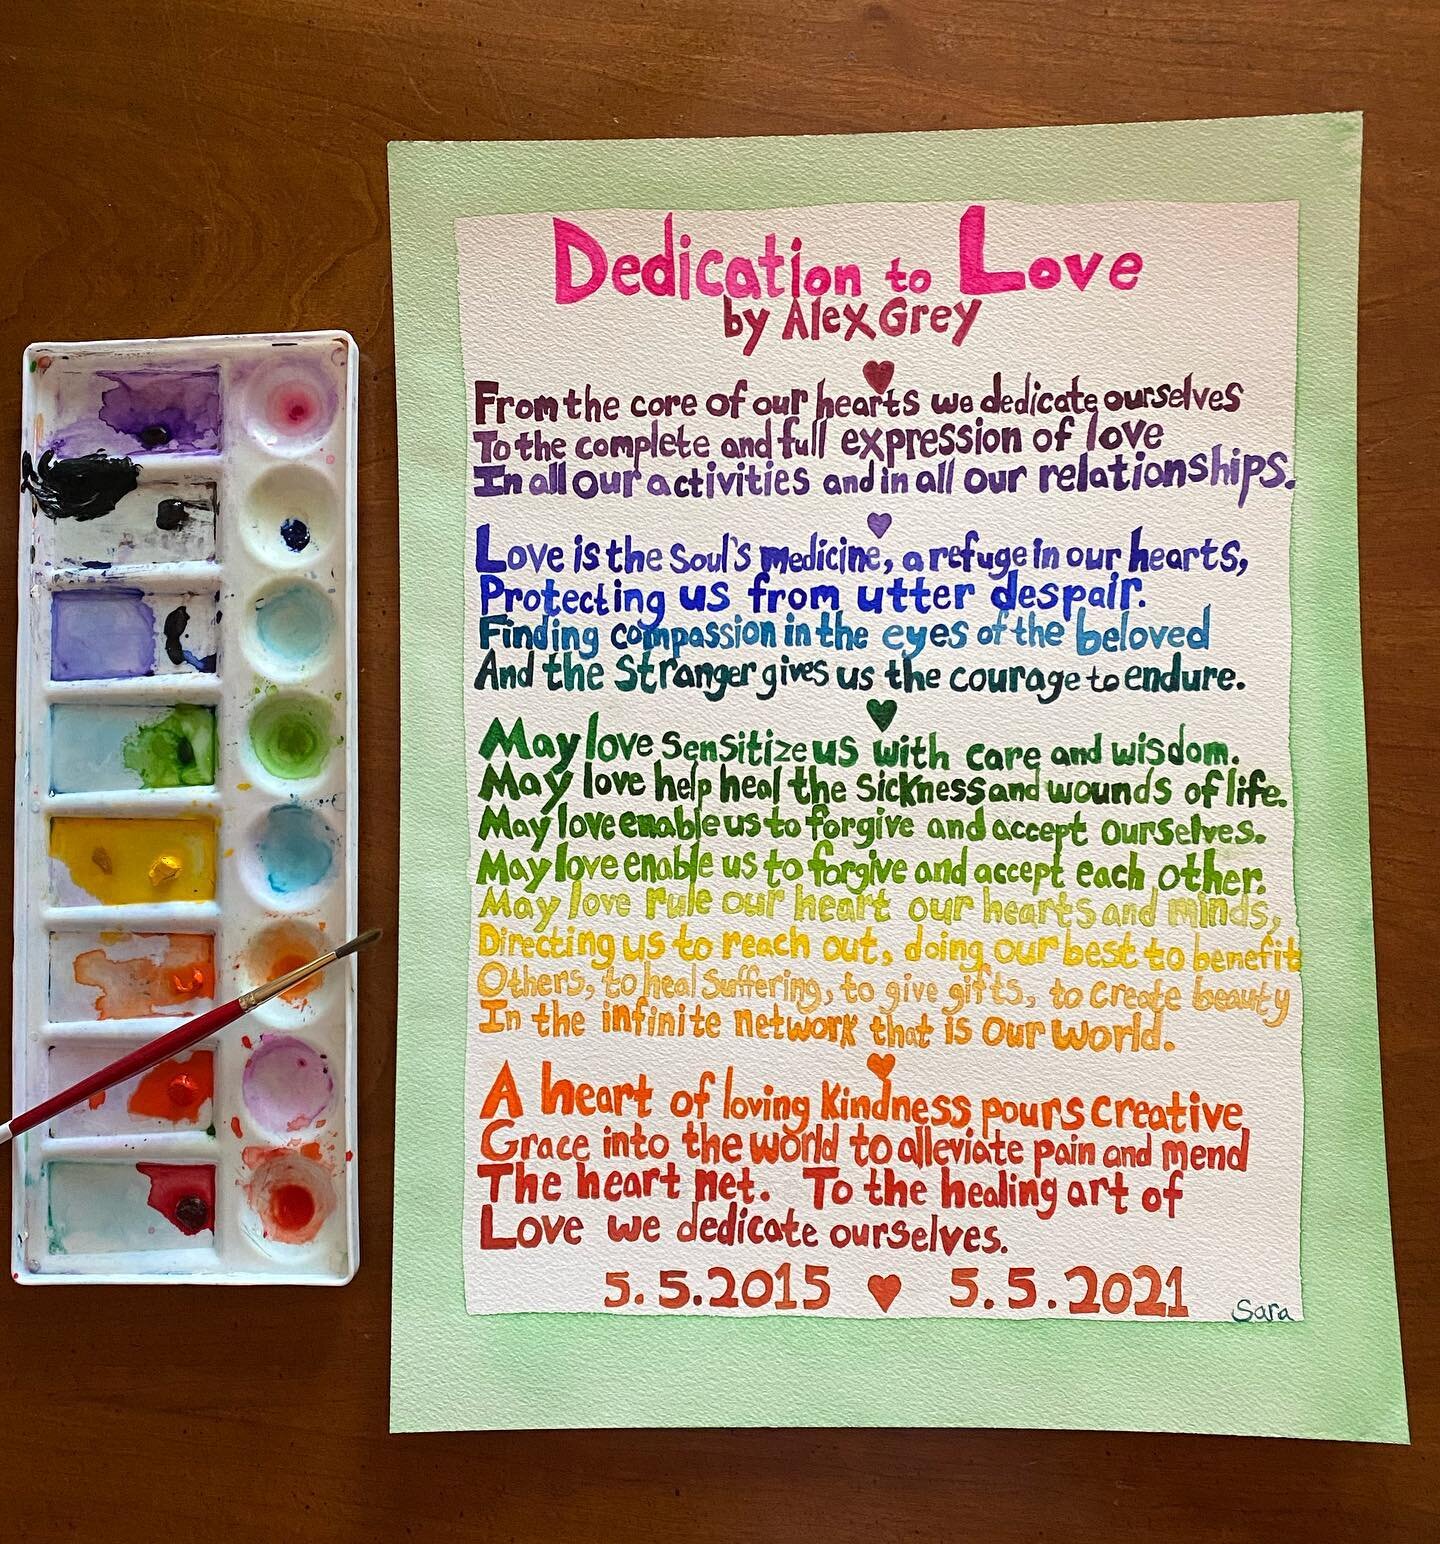 Dedication to Love
by Alex Grey
From the core of our hearts we dedicate ourselves
To the complete and full expression of love
In all our activities and in all our relationships.
Love is the Soul's medicine, a refuge in our hearts,
Protecting us from utter despair.
Finding compassion in the eyes of the beloved
And the Stranger gives us the courage to endure.
May love Sensitize us with care and wisdom.
May love help heal the Sickness and wounds of life.
May love enable us to forgive and accept ourselves.
May love enable us to forgive and accept each other.
May love rule our heart our hearts and minds,
Directing us to reach out, doing our best to benefit
Others, to heal Suffering, to give gifts, to create beauty
In the infinite network that is Our World.
A heart of loving Kindness pours creative
Grace into the world to alleviate pain and mend
The heart net. To the healing art of
Love we dedicate ourselves.
5.5.2015 ♥ 5.5.2021
Sara